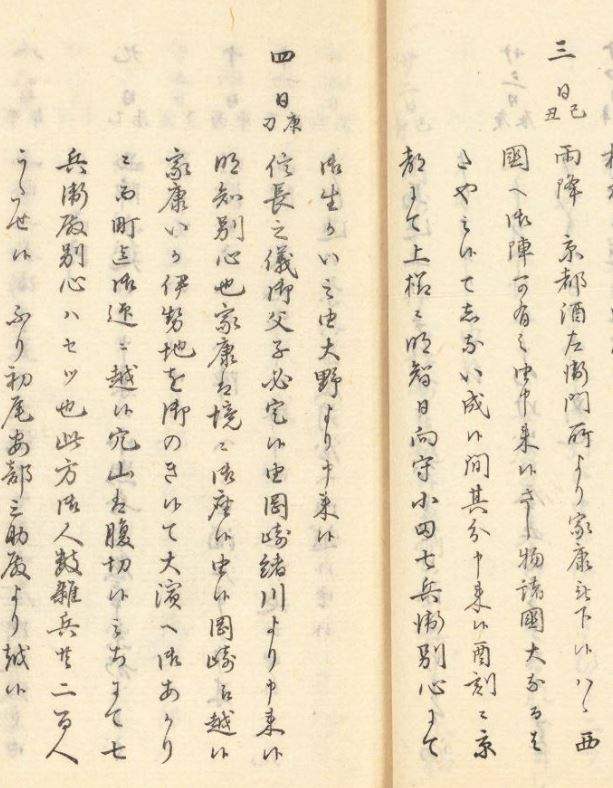 三日己丑 雨降、京都酒左衛門所より家康御下候ハヽ西
國へ御陣可有之由申来候さし物諸國大なるは
やミ候て志ない成候間其分申来候酉刻ニ京
都にて上様ニ明智日向守小田七兵衛別心にて
御生かい之由大野より申来候
四日庚刀 信長之儀御父子必定候由岡崎緒川より申来候
明知別心也家康者境ニ御座候由候岡崎江越候
家康いか伊勢地を御のき候て大濱へ御あかり
ニ而町迄御迎ニ越候穴山者腹切候ミちにて七
兵衛殿別心ハセツ也此方御人数雑兵共二百人
うたせ候 ふり初尾安部三助殿より越候